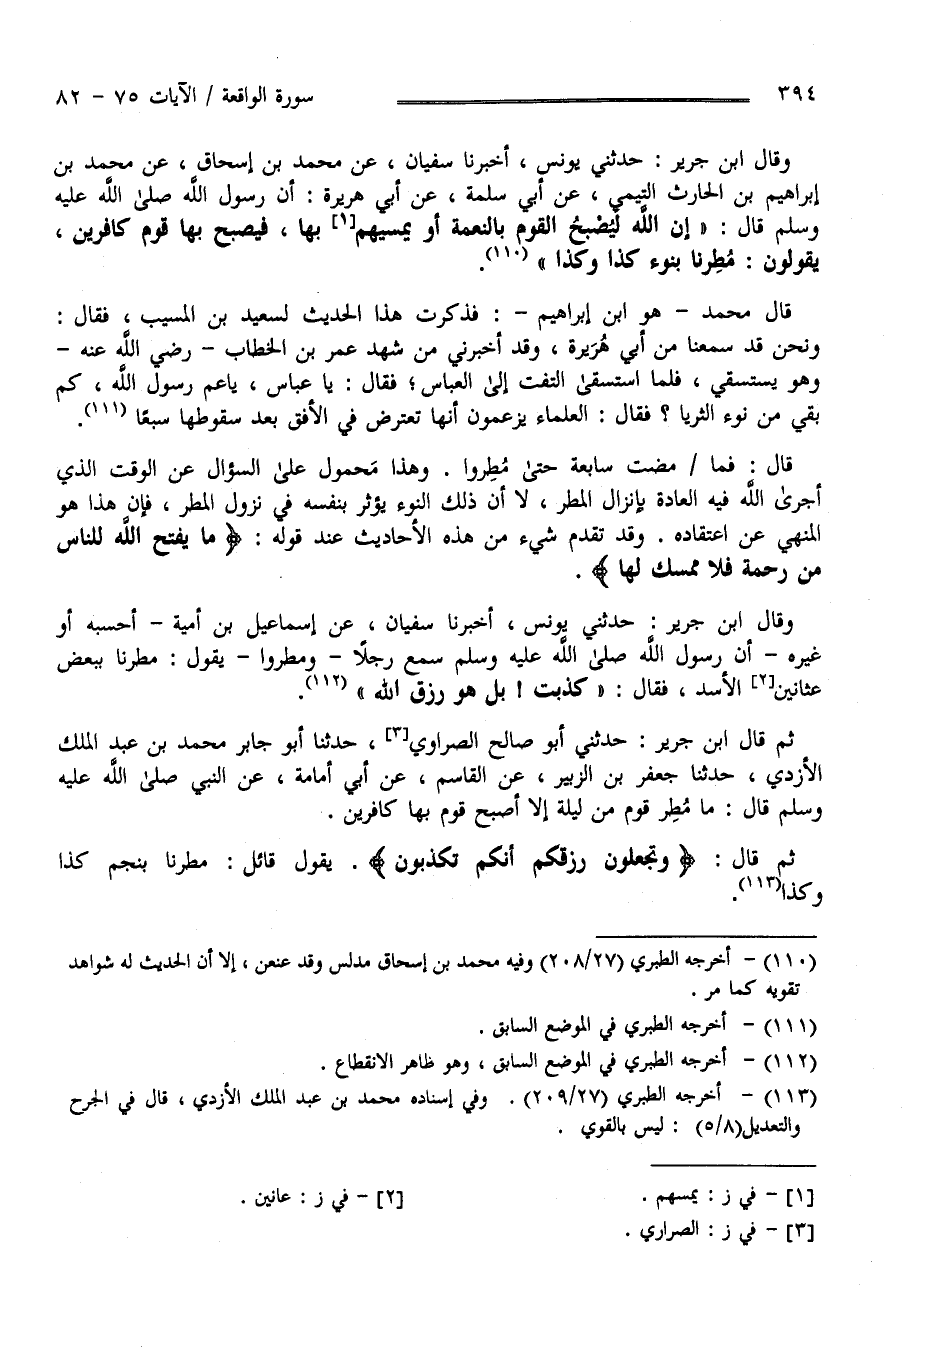 ٣٩٤ سورة الواقعة / الآيات ٧٥ - ٨٢
وقال ابن جرير : حدثني يونس ، أخبرنا سفيان ، عن محمد بن إسحاق ، عن محمد بن
إبراهيم بن الحارث التيمي ، عن أبي سلمة ، عن أبي هريرة : أن رسول اللَّه صلىٰ اللَّه عليه
وسلم قال : « إن اللَّه ليُصْبِحُ القوم بالنعمة أو يمسيهم[١] بها ، فيصبح بها قوم كافرين ،
يقولون : مُطِرنا بنوء كذا وكذا » (١١٠).
قال محمد - هو ابن إبراهيم - : فذكرت هذا الحديث لسعيد بن المسيب ، فقال :
ونحن قد سمعنا من أبي هُرَيرة ، وقد أخبرني من شهد عمر بن الخطاب - رضي اللَّه عنه -
وهو يستسقي ، فلما استسقىٰ التفت إلىٰ العباس؛ فقال : يا عباس ، ياعم رسول اللَّه ، كم
بقي من نوء الثريا ؟ فقال : العلماء يزعمون أنها تعترض في الأفق بعد سقوطها سبعًا (١١١).
قال : فما / مضت سابعة حتىٰ مُطِروا . وهذا مَحمول علىٰ السؤال عن الوقت الذي
أجرىٰ اللَّه فيه العادة بإنزال المطر ، لا أن ذلك النوء يؤثر بنفسه في نزول المطر ، فإن هذا هو
المنهي عن اعتقاده . وقد تقدم شيء من هذه الأحاديث عند قوله : ﴿ ما يفتح اللَّه للناس
من رحمة فلا ممسك لها ﴾ .
وقال ابن جرير : حدثني يونس ، أخبرنا سفيان ، عن إسماعيل بن أمية - أحسبه أو
غيره - أن رسول اللَّه صلىٰ اللَّه عليه وسلم سمع رجلًا - ومطروا - يقول : مطرنا ببعض
عثانين[٢] الأسد ، فقال : « كذبت ! بل هو رزق الله » (١١٢).
ثم قال ابن جرير : حدثني أبو صالح الصراوي[٣] ، حدثنا أبو جابر محمد بن عبد الملك
الأزدي ، حدثنا جعفر بن الزبير ، عن القاسم ، عن أبي أمامة ، عن النبي صلىٰ اللَّه عليه
وسلم قال : ما مُطِر قوم من ليلة إلا أصبح قوم بها كافرين .
ثم قال : ﴿ وتجعلون رزقكم أنكم تكذبون ﴾ . يقول قائل : مطرنا بنجم كذا
وكذا(١١٣).
(١١٠) - أخرجه الطبري (٢٠٨/٢٧) وفيه محمد بن إسحاق مدلس وقد عنعن ، إلا أن الحديث له شواهد
تقويه كما مر .
(١١١) - أخرجه الطبري في الموضع السابق .
(١١٢) - أخرجه الطبري في الموضع السابق ، وهو ظاهر الانقطاع .
(١١٣) - أخرجه الطبري (٢٠٩/٢٧) . وفي إسناده محمد بن عبد الملك الأزدي ، قال في الجرح
والتعديل(٥/٨) : ليس بالقوي .
[١] - في ز : يمسهم . [٢] - في ز : عانين .
[٣] - في ز : الصراري .